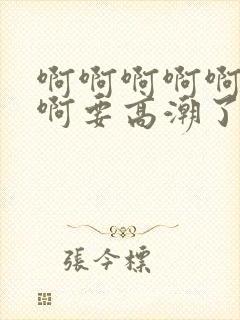 啊啊啊啊啊
啊要高潮了
張今標